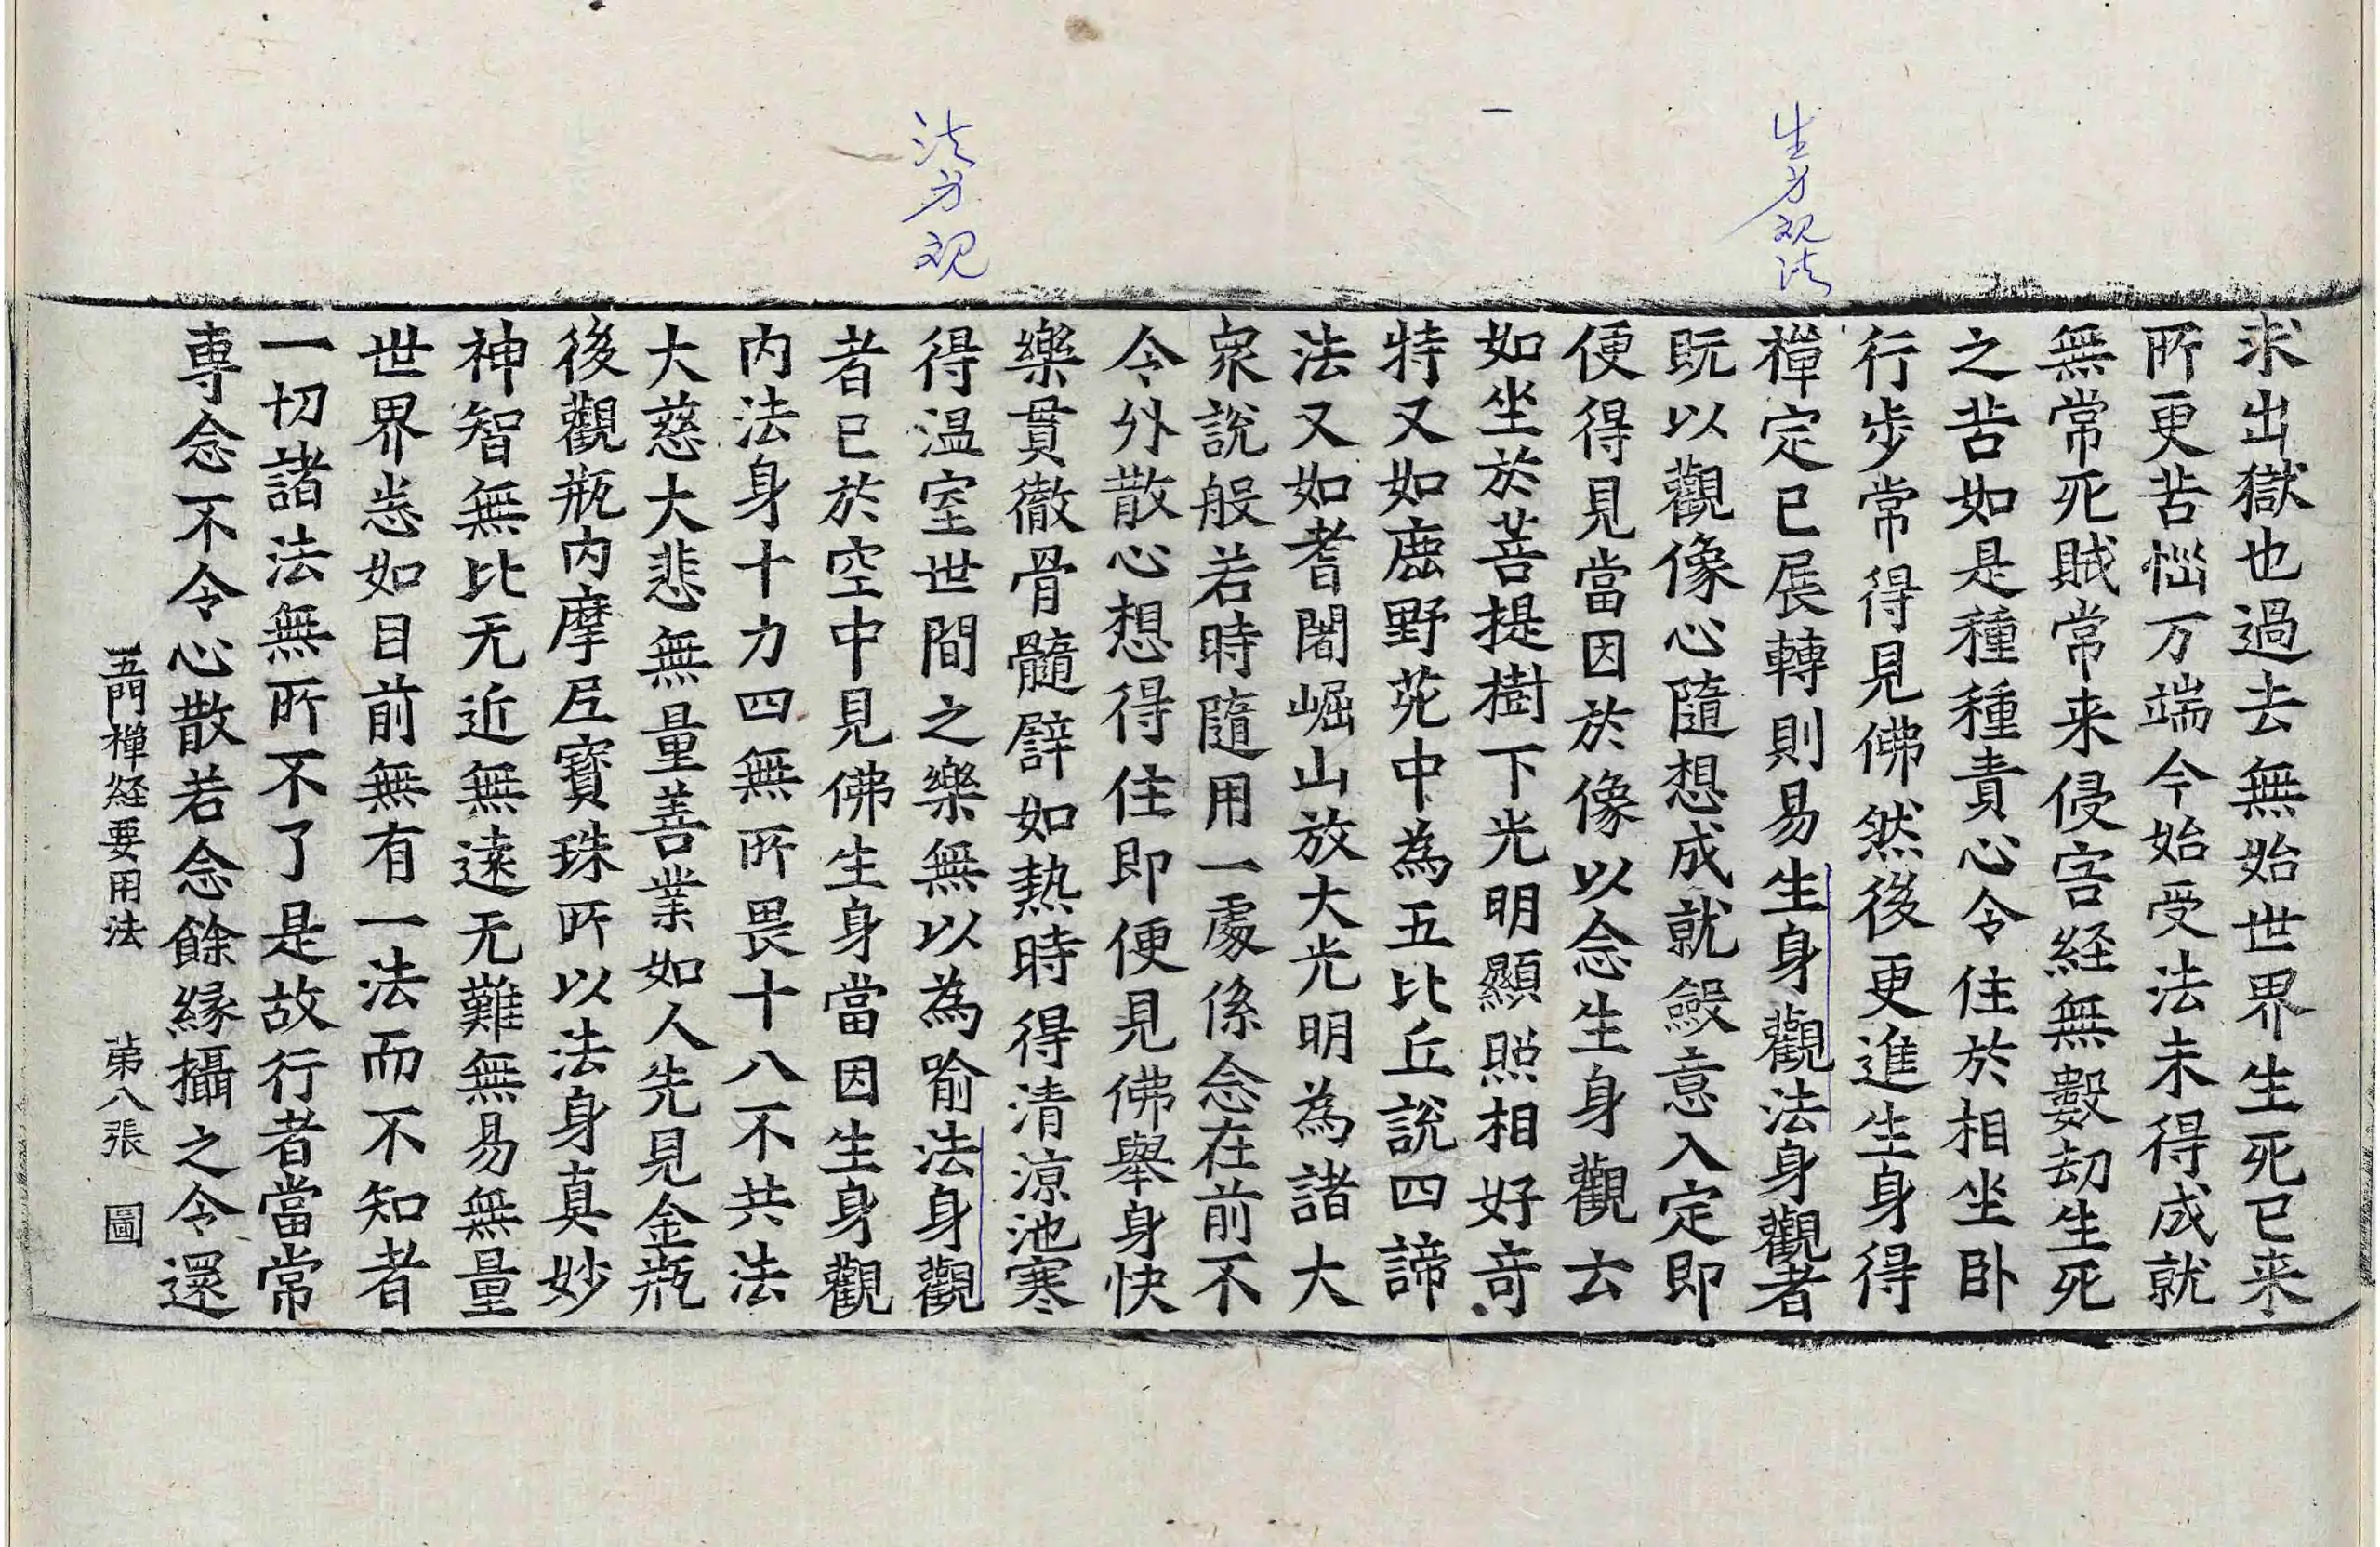 生身观法
一
法身观
求出獄也過去無始世界生死已来
所更苦惱万端今始受法未得成就
無常死賊常来侵害経無數劫生死
之苦如是種種責心令住於相坐卧
行步常得見佛然後更進生身得
禪定已展轉則易生身觀法身觀者
既以觀像心隨想成就斂意入定即
便得見當因於像以念生身觀去
如坐於菩提樹下光明顯照相好竒
特又如鹿野苑中為五比丘說四諦
法又如耆闍崛山放大光明為諸大
衆說般若時隨用一處係念在前不
令外散心想得住即便見佛舉身快
樂貫徹骨髓辟如熱時得清涼池寒
得温室世間之樂無以為喻法身觀
者已於空中見佛生身當因生身觀
内法身十力四無所畏十八不共法
大慈大悲無量善業如人先見金瓶
後觀瓶内摩尼寶珠所以法身真妙
神智無比无近無遠无難無易無量
世界悉如目前無有一法而不知者
一切諸法無所不了是故行者當常
専念不令心散若念餘縁攝之令還
五門禪経要用法 第八張 圖